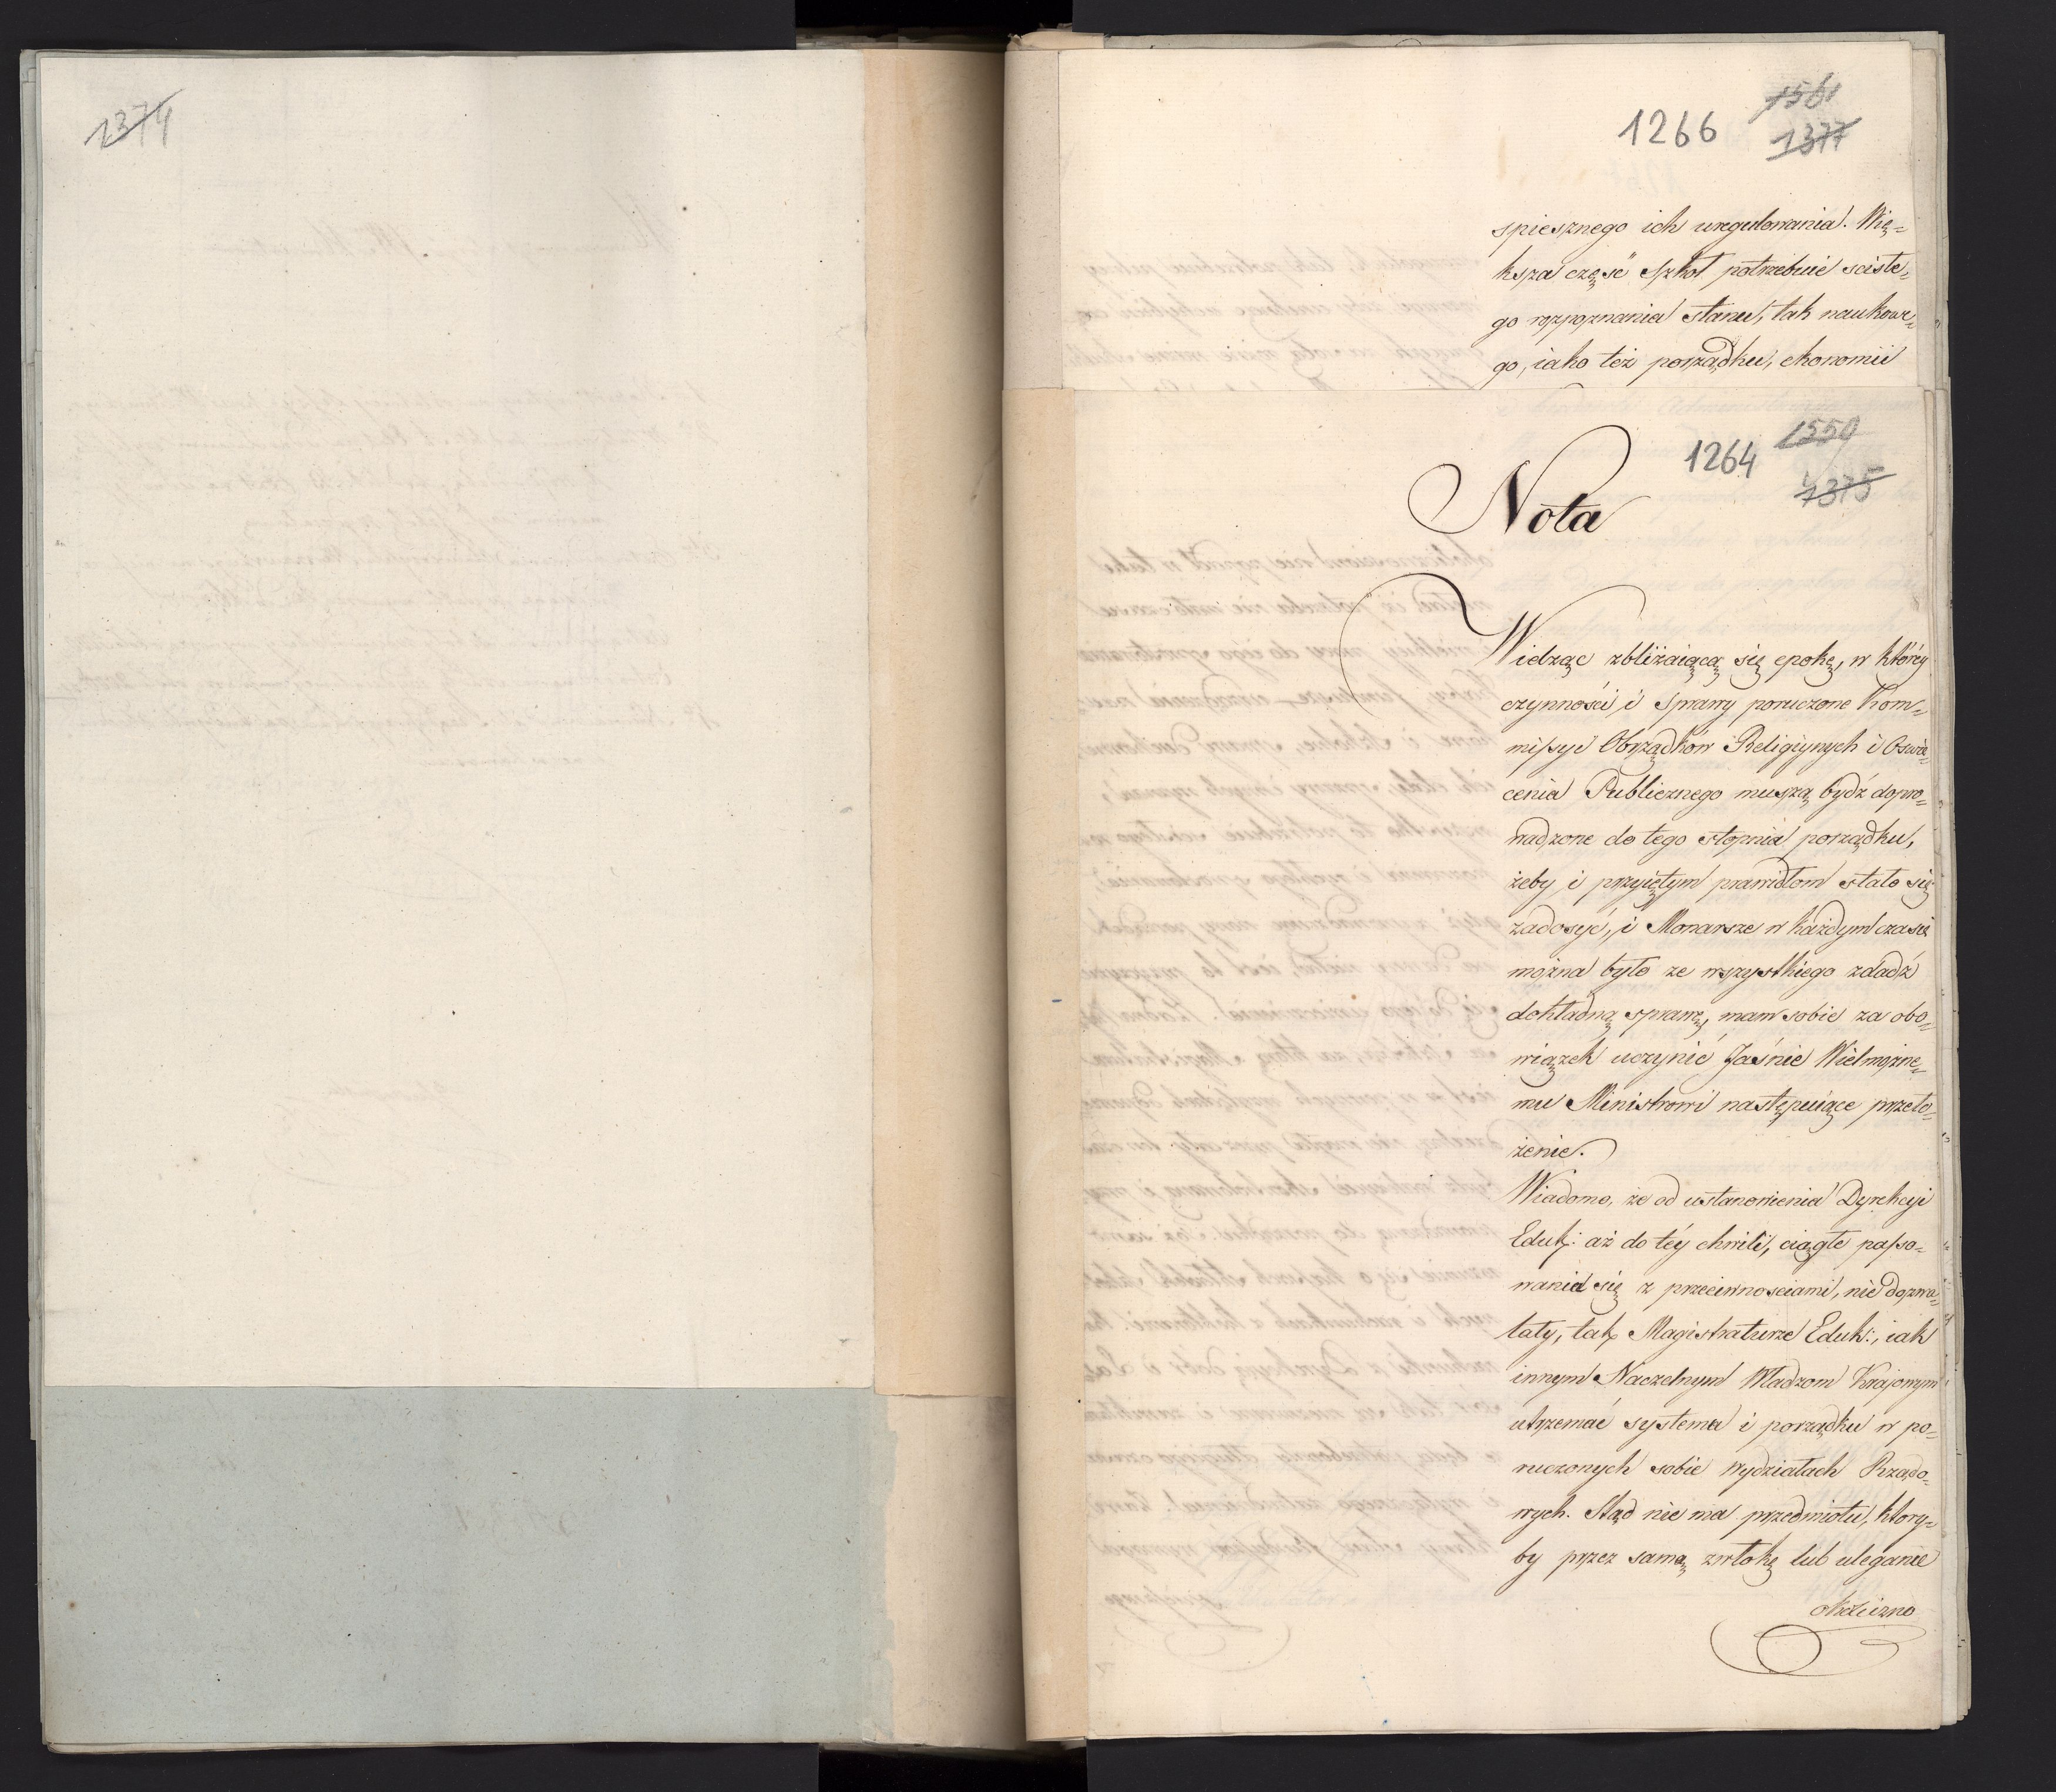 1374
1266
1561
1377
spiesznego ich uregulowania. Wię=
ksza część szkoł potrzebuie sciste=
go rozpoznania stanu, tak naukowe=
go, iako też porządku, ekonomii
1264
1550
1375
Nota
Widząc zbliżaiącą się epokę, w któréy
czynności i sprawy poruczone Kom=
missyi Obrządków Religiynych i Oswie=
cenia Publicznego muszą bydź dopro=
wadzone do tego stopnia porządku,
żeby i przyiętym prawidłom stało się
zadosyć, i Monarsze w każdym czasie
można było ze wszystkiego zdadź
dokładną sprawę, mam sobie za obo=
wiązek uczynić Jaśnie Wielmożne=
mu Ministrowi następuiące przeło=
żenie.
Wiadomo, że od ustanowienia Dyrekcyi
Eduk: aż do téy chwili, ciągłe passo=
wania się z przeciwnosciami, nie dozwa=
lały, tak Magistraturze Eduk:, iak
innym Naczelnym Władzom Krajowym
utrzemać systema i porządku w po=
ruczonych sobie wydziałach Rządo=
wych. Stąd nie ma przedmiotu, ktory=
by przez samą zwłokę lub uleganie
okoliczno